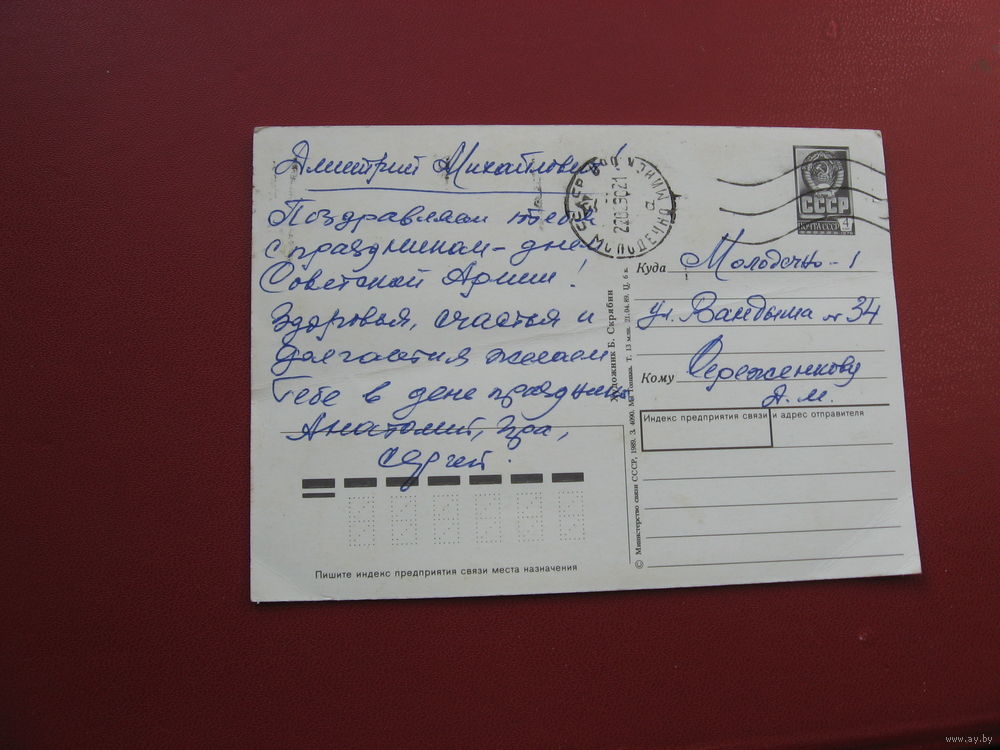 Дмитрий Михайлович!
Поздравляем тебя
с праздником - днем
Советской Армии!
Здоровья, счастья и
долголетия желаем
Тебе в день праздника
Анатолий, Ира,
Сергей.
Пишите индекс предприятия связи места назначения
СССР
ПОЧТА СССР
4
Куда Молодечно - 1
ул. 34
Кому Сереженкову
Д. М.
Индекс предприятия связи и адрес отправителя
Художник Б. Скрябин
© Министерство связи СССР, 1989. З. 4090. Т. 13 млн. 21.04.89. Ц. 6 к.
www.ay.by